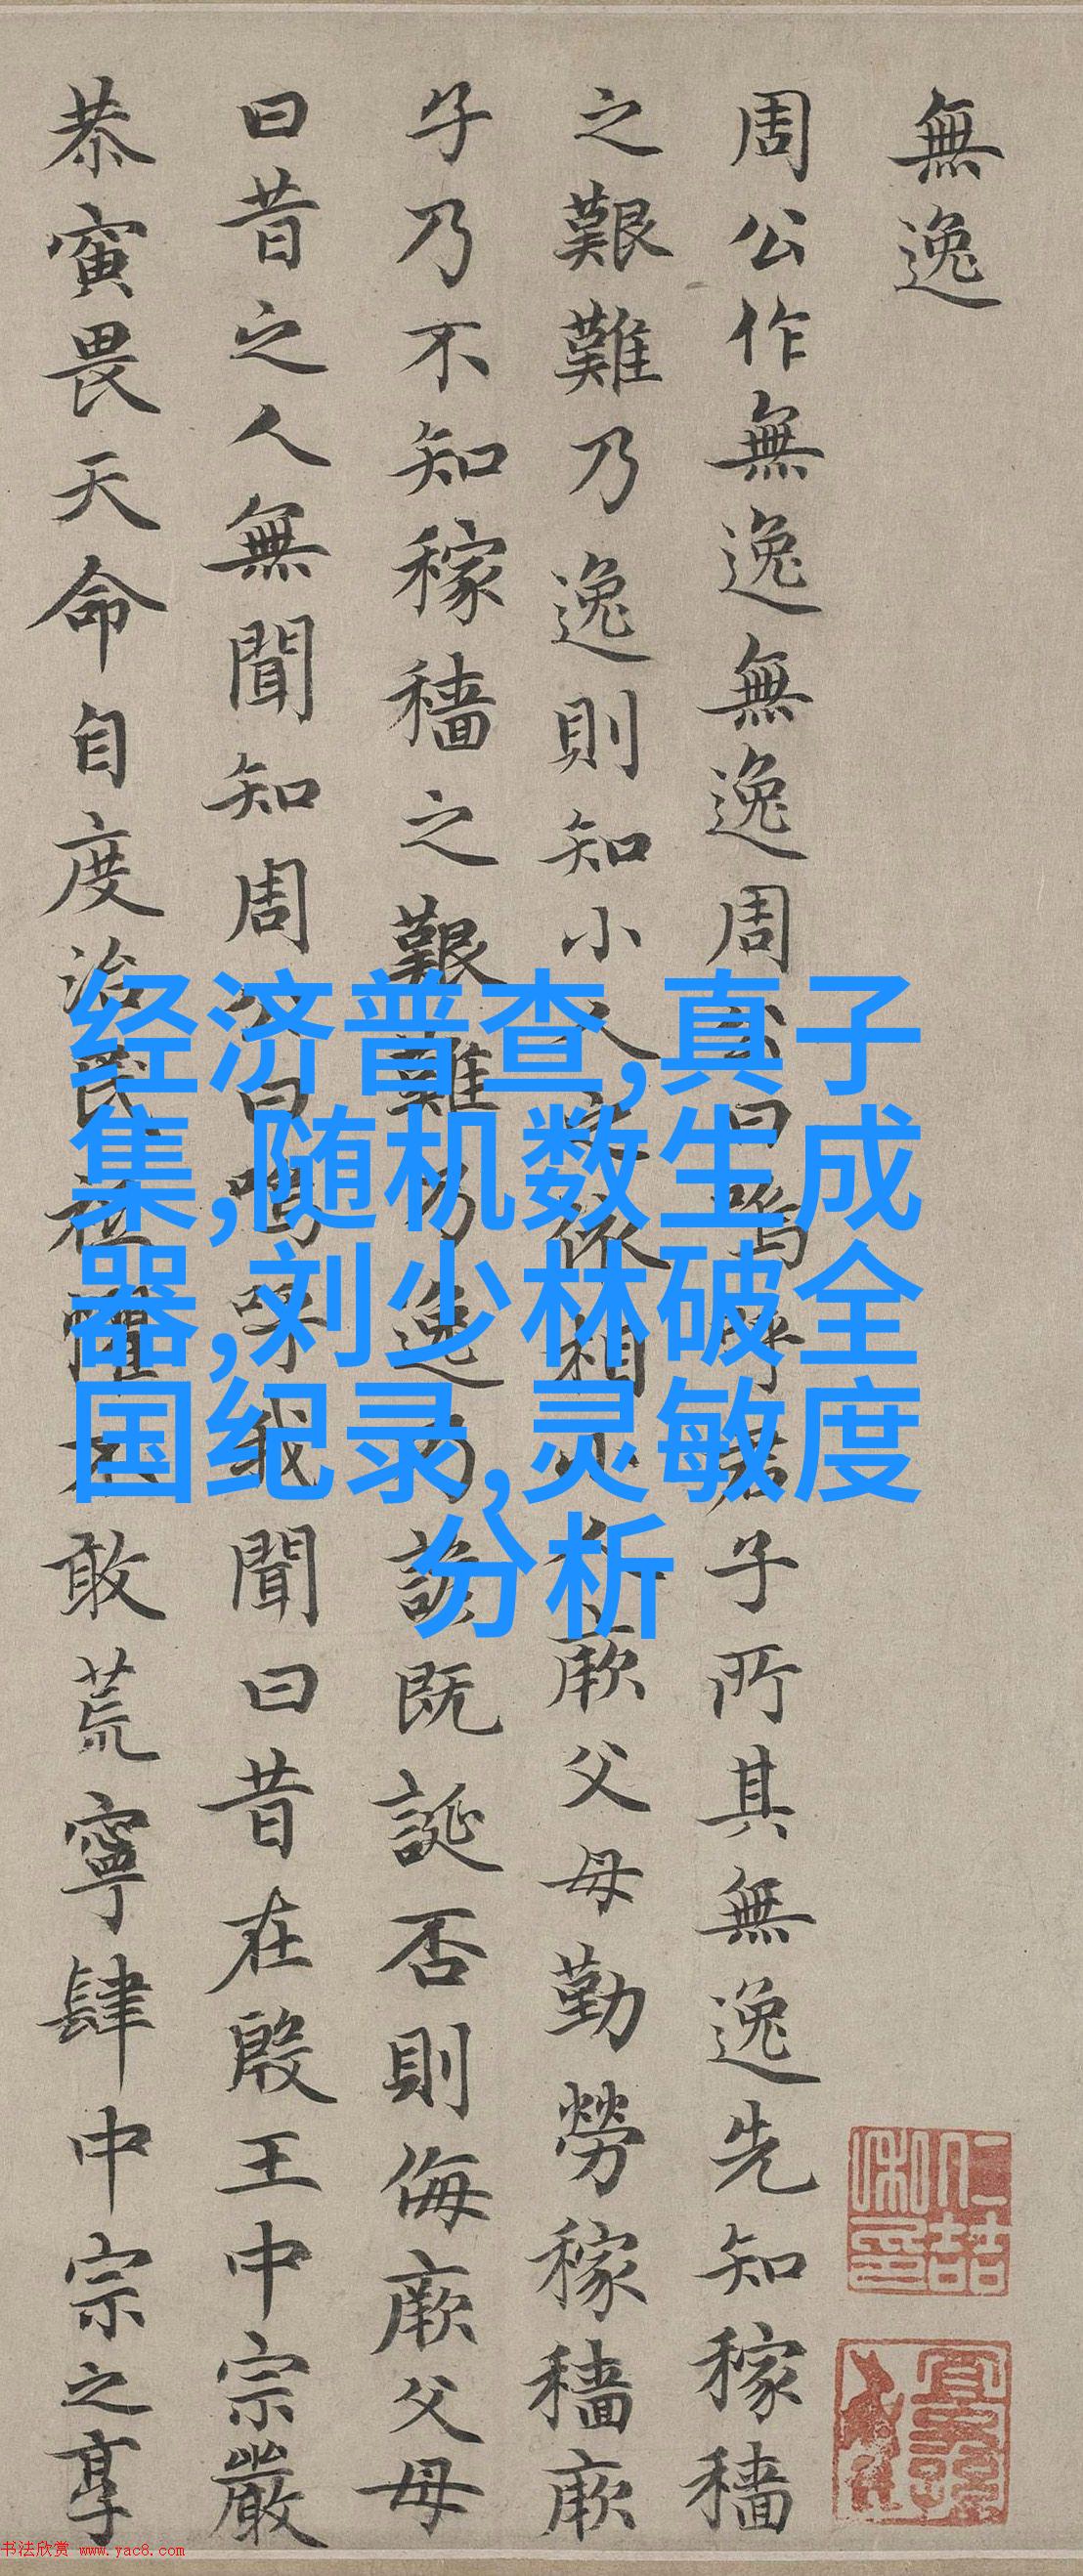 無逸
周公作無逸無逸周公曰嗚呼君子所其無逸先知稼穡
之艱難乃逸則知小人之依相小人厥父母勤勞稼穡厥
子乃不知稼穡之艱難乃逸乃諺既誕否則侮厥父母
曰昔之人無聞知周公曰嗚呼我聞曰昔在殷王中宗嚴
恭寅畏天命自度治民祗懼不敢荒寧肆中宗之享
经济普查,真子
集,随机数生成
器,刘少林破全
国纪录,灵敏度
分析
书法欣赏 www.yac8.com